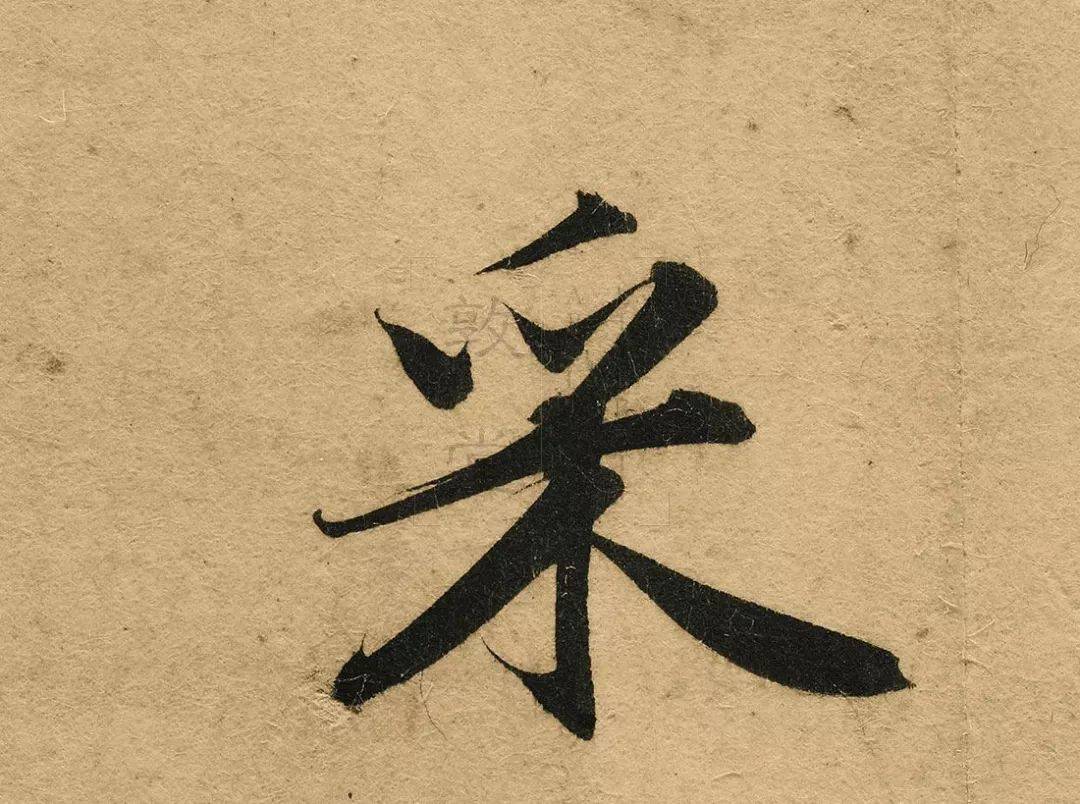 采
敦
堂